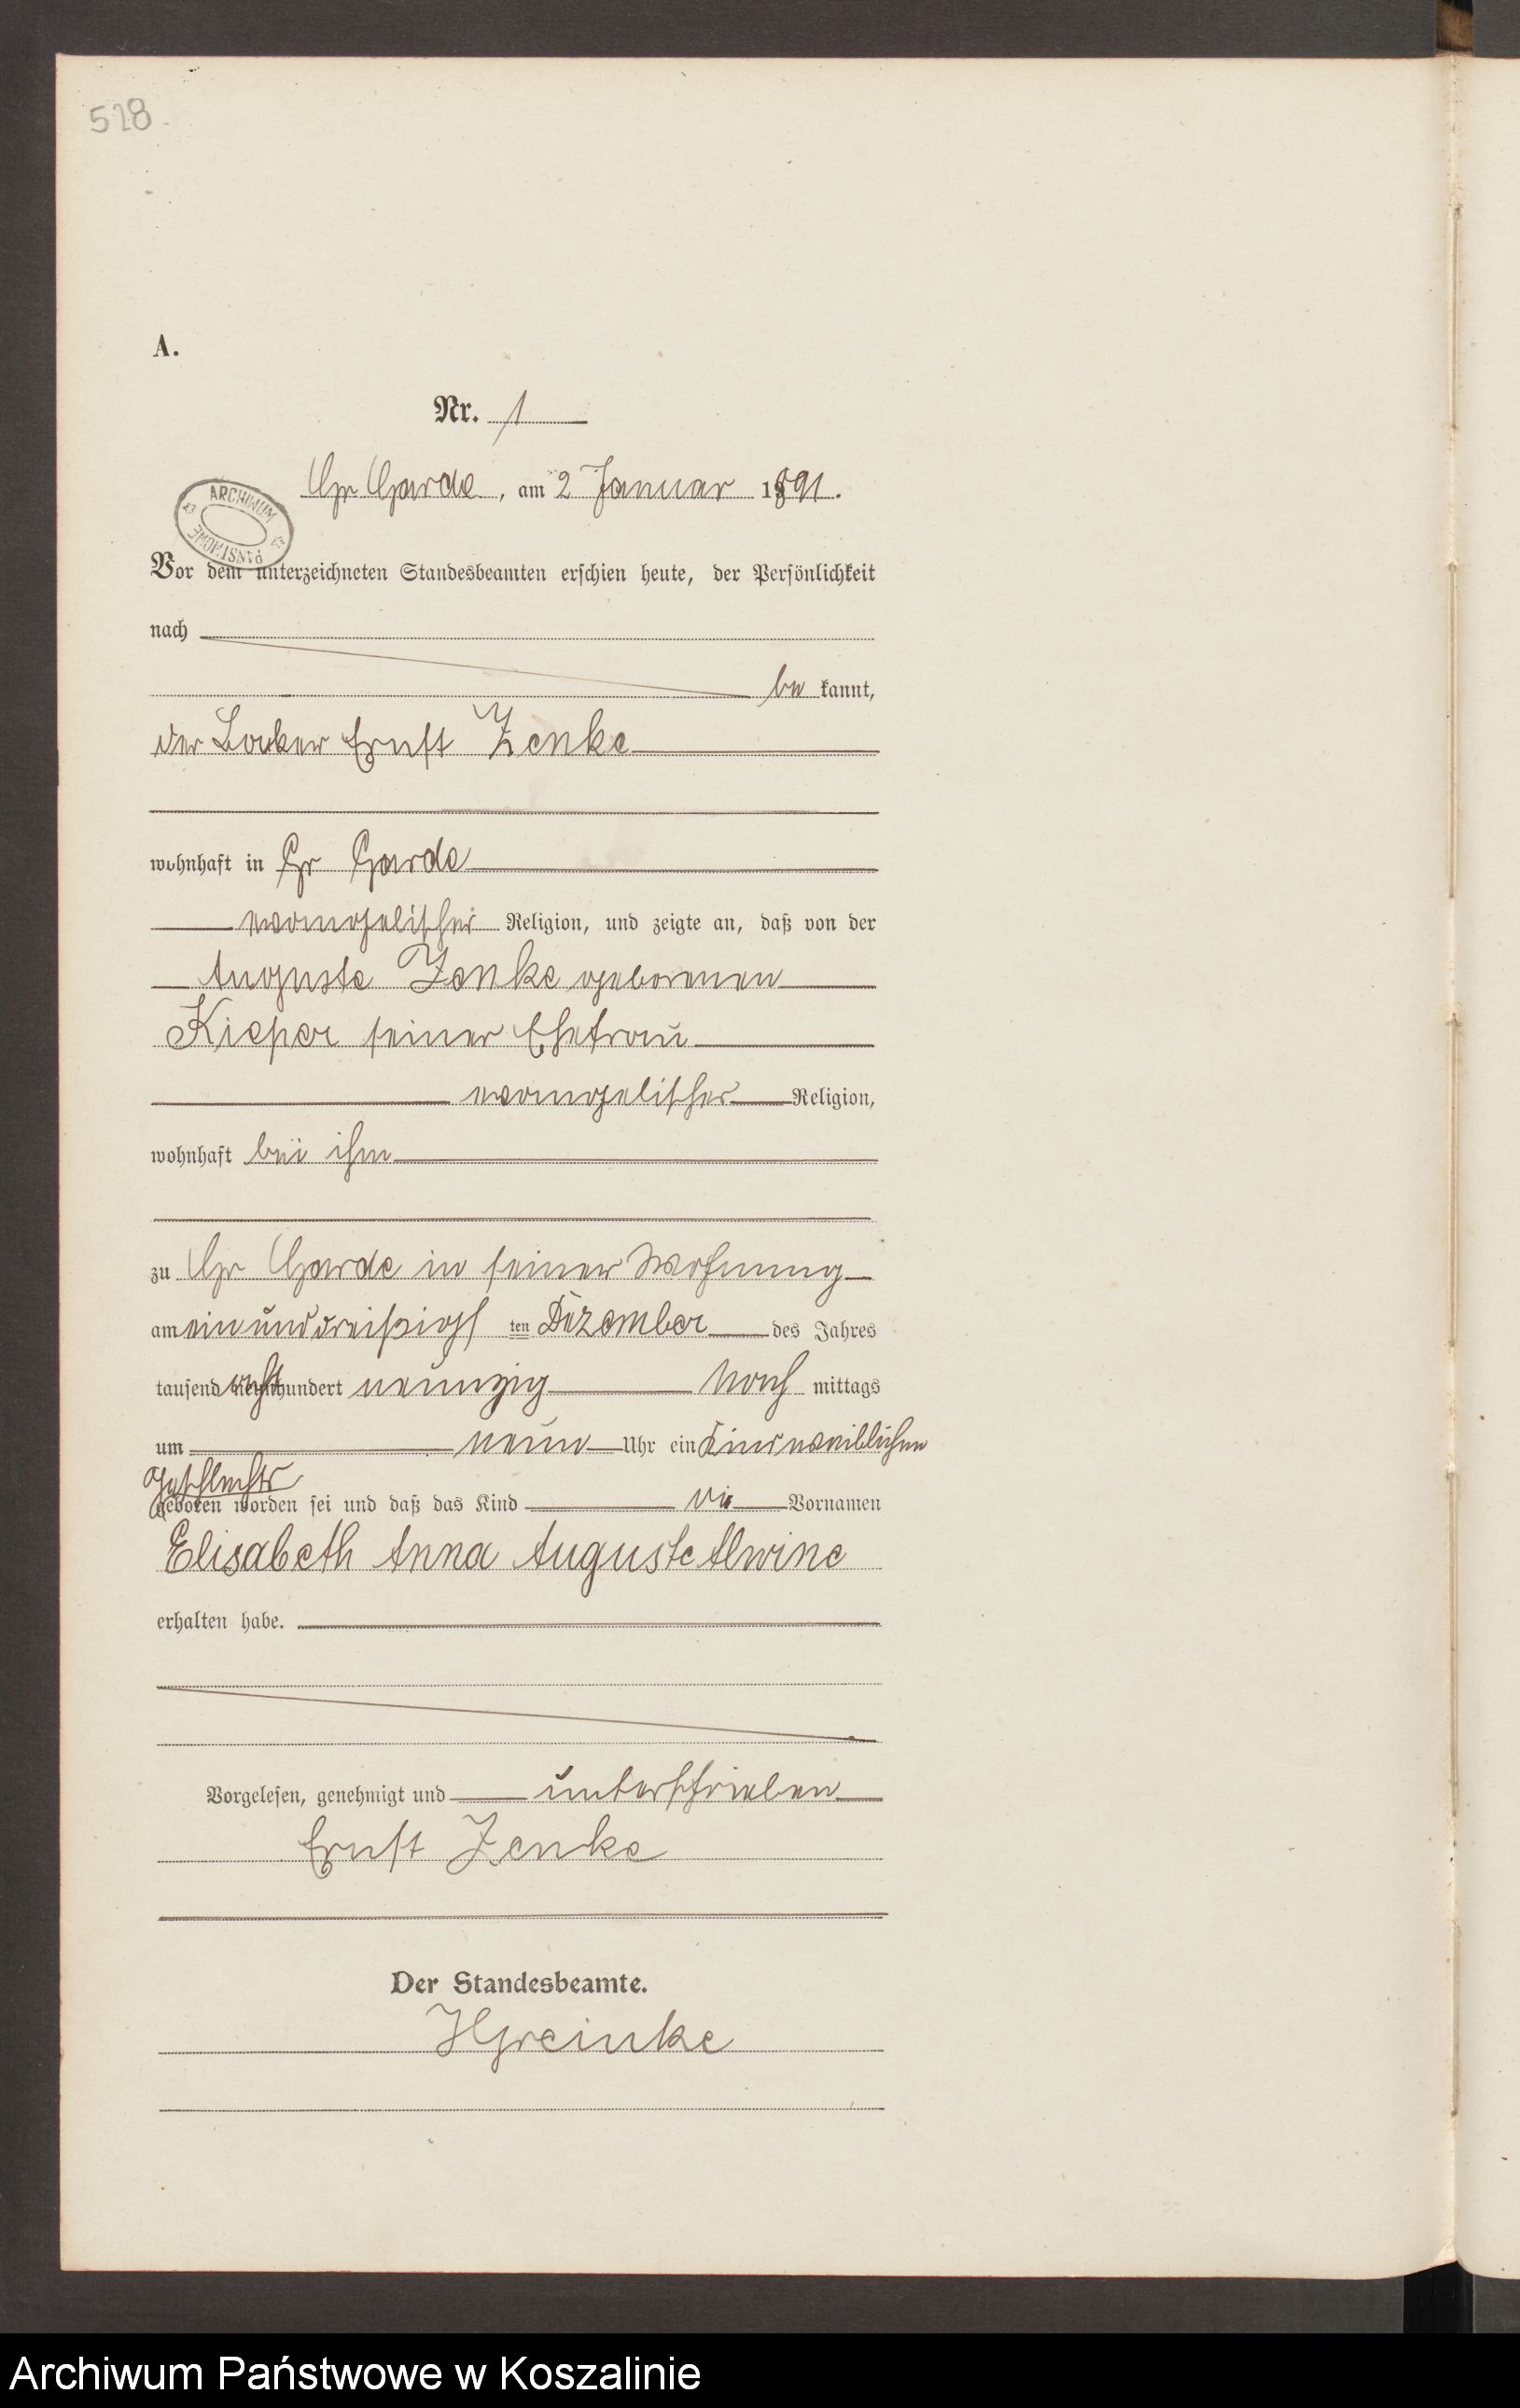 528
A.
Nr. 1
Gr Garde, am 2 Januar 1891.
ARCHIWUM
PAŃSTWOWE
Vor dem unterzeichneten Standesbeamten erschien heute, der Persönlichkeit
nach
be kannt,
der Ernst Zenke
wohnhaft in Gr Garde
evangelischer Religion, und zeigte an, daß von der
Auguste Zenke geborenen
Kieper seiner Ehefrau
evangelischer Religion,
wohnhaft bei ihm
zu Gr Garde in seiner Wohnung
am einunddreißigs ten Dezember des Jahres
tausend acht hundert neunzig Nach mittags
um neun Uhr ein Kind weiblichen
Geschlechts
geboren worden sei und daß das Kind die Vornamen
Elisabeth Anna Auguste Alwine
erhalten habe.
Vorgelesen, genehmigt und unterschrieben
Ernst Zenke
Der Standesbeamte.
HGreinke
Archiwum Państwowe w Koszalinie